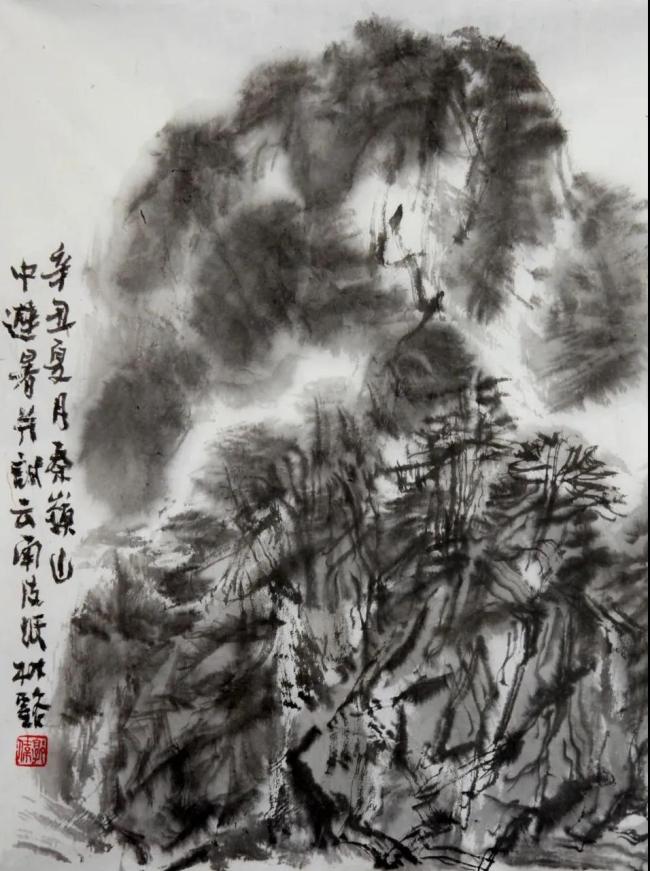 辛丑夏月秦嶺山
中避暑并試云南皮紙林谿